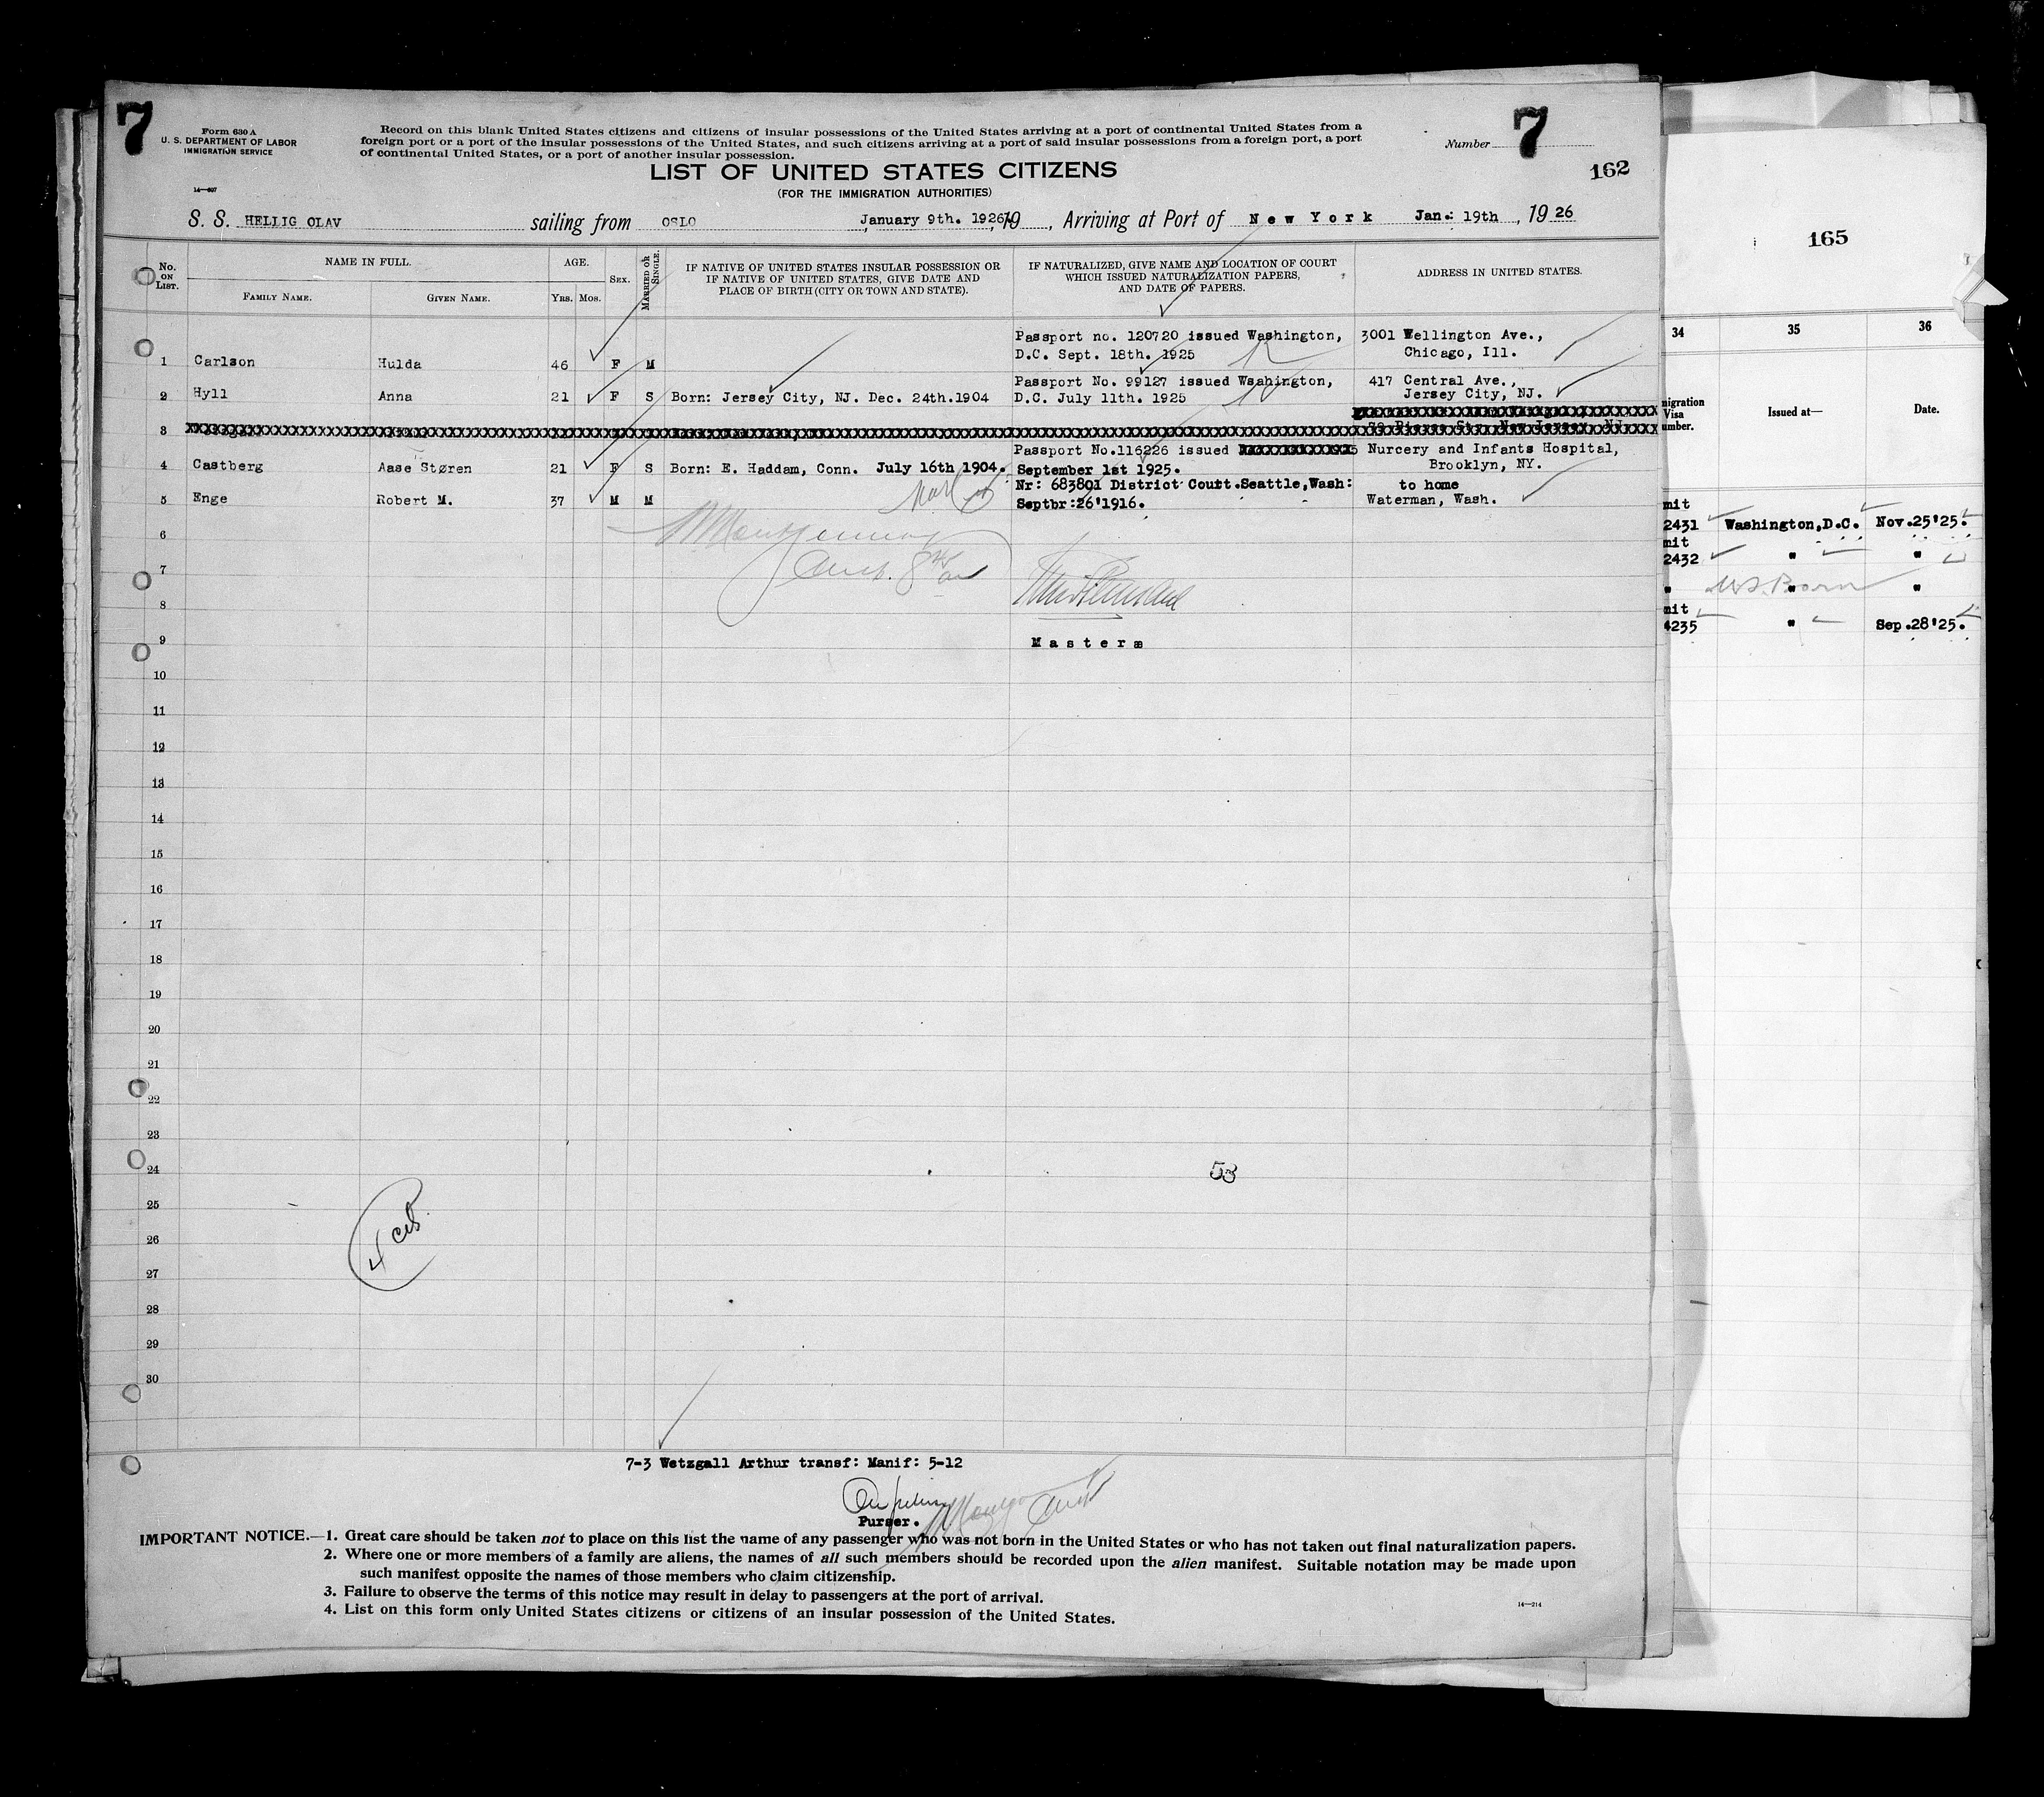 7
Form 630 A
U. S. DEPARTMENT OF LABOR
IMMIGRATION SERVICE
14—607
Record on this blank United States citizens and citizens of insular possessions of the United States arriving at a port of continental United States from a
foreign port or a port of the insular possessions of the United States, and such citizens arriving at a port of said insular possessions from a foreign port, a port
of continental United States, or a port of another insular possession.
Number 7
162
LIST OF UNITED STATES CITIZENS
(FOR THE IMMIGRATION AUTHORITIES)
S. S. HELLIG OLAV sailing from OSLO January 9th. 1926, 19 , Arriving at Port of New York Jan.: 19th , 19 26
No. ON LIST.
NAME IN FULL.
FAMILY NAME.
GIVEN NAME.
AGE.
YRS. MOS.
SEX.
MARRIED OR SINGLE.
IF NATIVE OF UNITED STATES INSULAR POSSESSION OR
IF NATIVE OF UNITED STATES, GIVE DATE AND
PLACE OF BIRTH (CITY OR TOWN AND STATE).
IF NATURALIZED, GIVE NAME AND LOCATION OF COURT
WHICH ISSUED NATURALIZATION PAPERS,
AND DATE OF PAPERS.
ADDRESS IN UNITED STATES.
Passport no. 120720 issued Washington, 3001 Wellington Ave.,
1 Carlson Hulda 46 F M D.C. Sept. 18th. 1925 Chicago, Ill.
Passport No. 99127 issued Wsahington, 417 Central Ave.,
2 Hyll Anna 21 F S Born: Jersey City, NJ. Dec. 24th.1904 D.C. July 11th. 1925 Jersey City, NJ.
3
Passport No.116226 issued Nurcery and Infants Hospital,
4 Castberg Aase Støren 21 F S Born: E. Haddam, Conn. July 16th 1904. September 1st 1925. Brooklyn, NY.
Nr: 683801 District Court.Seattle,Wash: to home
5 Enge Robert M. 37 M M Septbr:26'1916. Waterman, Wash.
6
7
8
9
Masteræ
10
11
12
13
14
15
16
17
18
19
20
21
22
23
24
53
25
26
27
28
29
30
7-3 Wetzgall Arthur transf: Manif: 5-12
Purser.
IMPORTANT NOTICE.—1. Great care should be taken not to place on this list the name of any passenger who was not born in the United States or who has not taken out final naturalization papers.
2. Where one or more members of a family are aliens, the names of all such members should be recorded upon the alien manifest. Suitable notation may be made upon
such manifest opposite the names of those members who claim citizenship.
3. Failure to observe the terms of this notice may result in delay to passengers at the port of arrival.
4. List on this form only United States citizens or citizens of an insular possession of the United States.
14—214
165
34 35 36
migration
Visa
umber.
Issued at—
Date.
mit
2431 Washington,D.C. Nov.25'25.
mit
2432 " "
" U.S. Born "
mit
4235 " Sep.28'25.